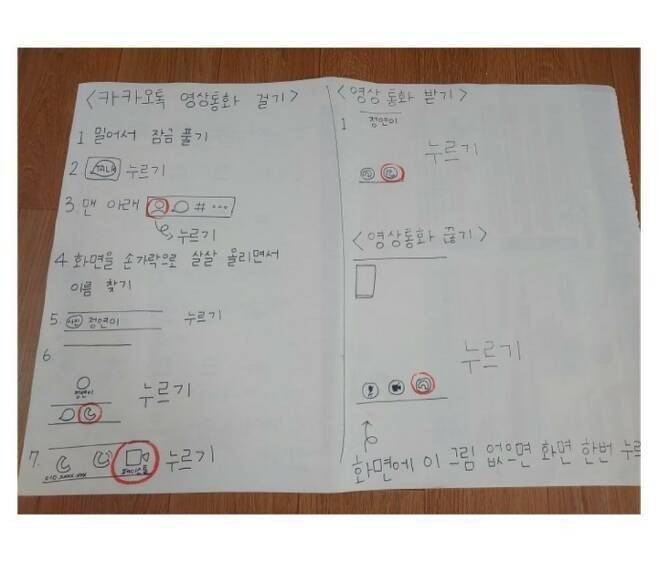 <카카오톡 영상통화 걸기>
1 밀어서 잠금 풀기
2. TALK 누르기
3. 맨 아래 # ...
누르기
4 화면을 손가락으로 살살 올리면서
이름 찾기
5 사진 정연이 누르기
6.
정연이
누르기
7. 페이스톡 누르기
010.xxxx.xxx
<영상통화 받기>
1 정연이
누르기
<영상통화 끊기>
누르기
화면에 이 그림 없으면 화면 한번 누르